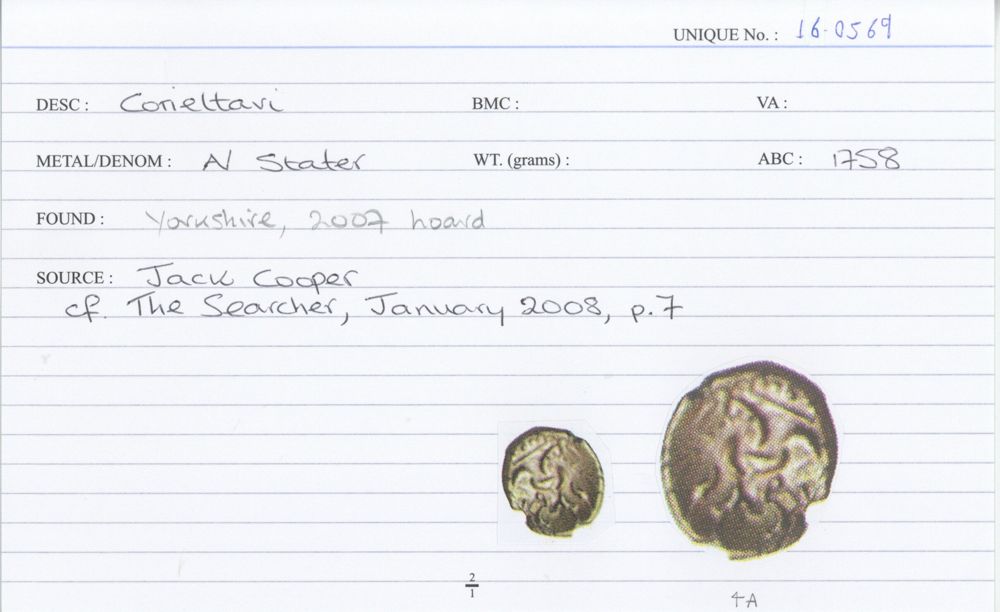 UNIQUE No. : 16.0569
DESC : Corieltavi BMC : VA :
METAL/DENOM : AV Stater WT. (grams) : ABC : 1758
FOUND : Yorkshire, 2007 hoard
SOURCE : Jack Cooper
cf. The Searcher, January 2008, p.7
2/1
↑A